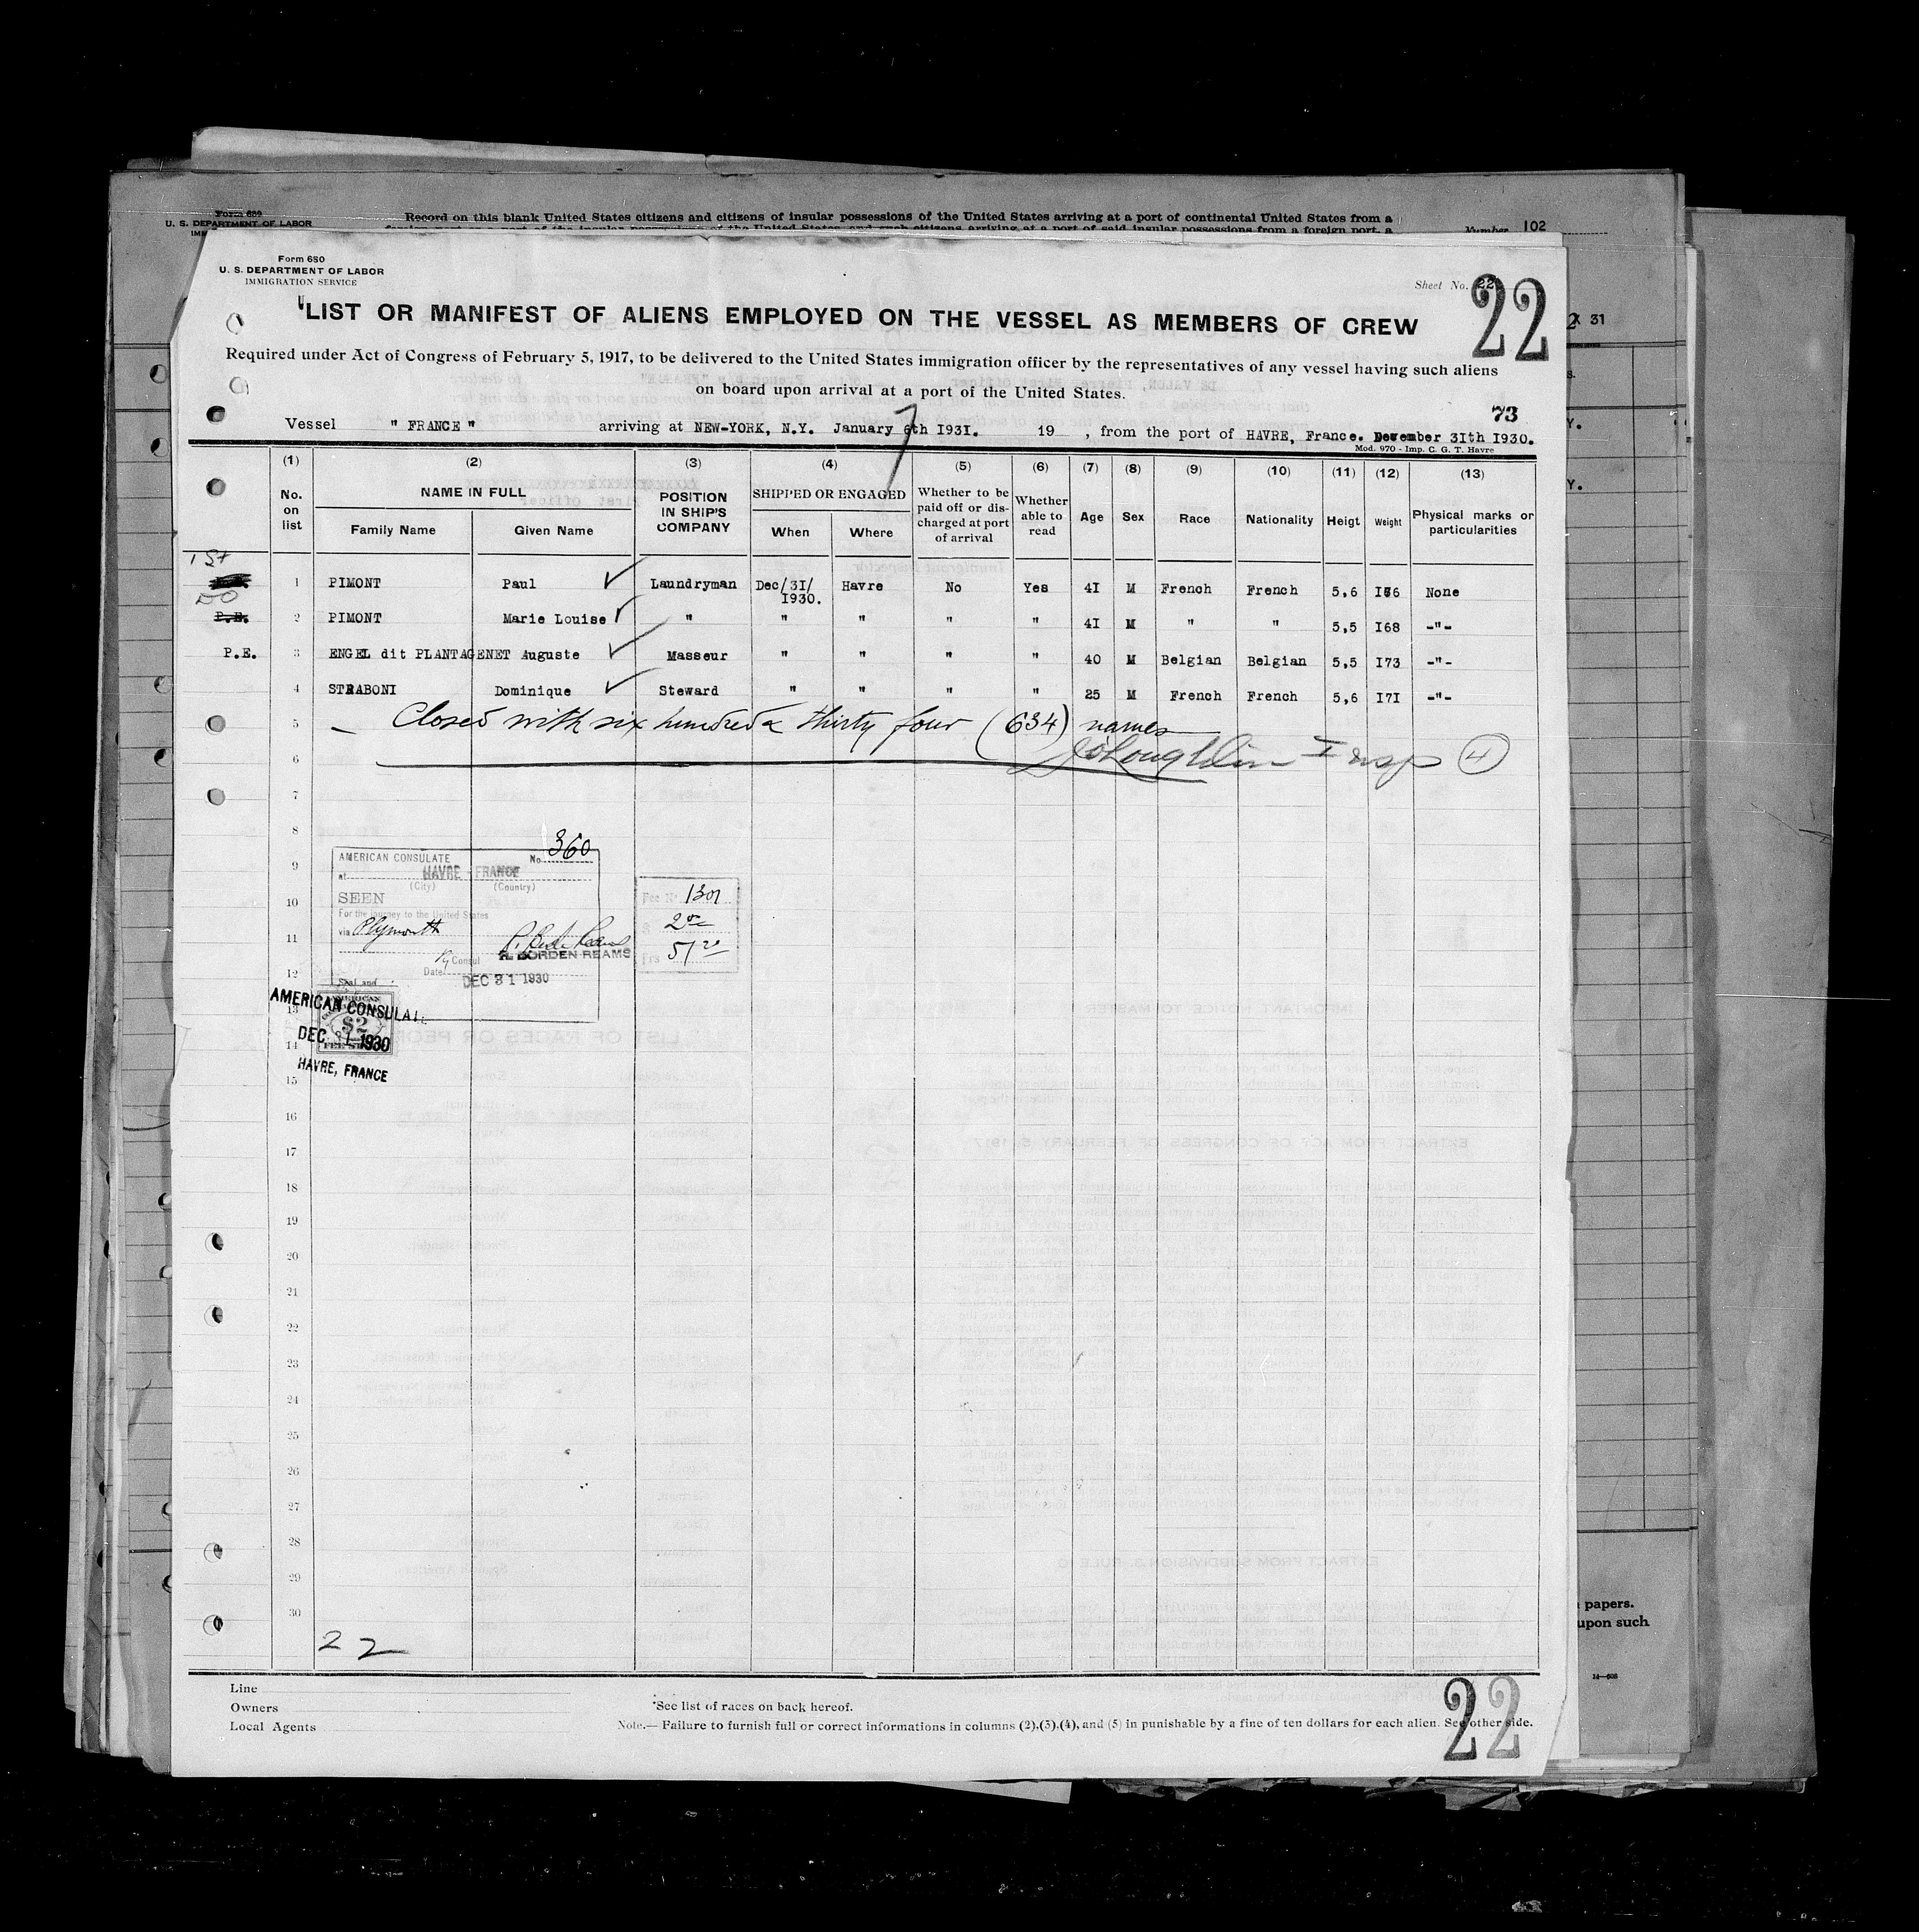 Form 689
U. S. DEPARTMENT OF LABOR
Record on this blank United States citizens and citizens of insular possessions of the United States arriving at a port of continental United States from a
foreign port or a port of the insular possessions of the United States, and such citizens arriving at a port of said insular possessions from a foreign port, a
Number 102
Form 680
U. S. DEPARTMENT OF LABOR
IMMIGRATION SERVICE
Sheet No. 22
22
LIST OR MANIFEST OF ALIENS EMPLOYED ON THE VESSEL AS MEMBERS OF CREW
31
Required under Act of Congress of February 5, 1917, to be delivered to the United States immigration officer by the representatives of any vessel having such aliens
on board upon arrival at a port of the United States.
73
Vessel " FRANCE " arriving at NEW-YORK, N.Y. January 6th I93I. 19 , from the port of HAVRE, France. December 31th I930.
7
Mod. 970 - Imp. C. G. T. Havre
(1) (2) (3) (4) (5) (6) (7) (8) (9) (10) (11) (12) (13)
No. on list NAME IN FULL Family Name Given Name POSITION IN SHIP'S COMPANY SHIPPED OR ENGAGED When Where Whether to be paid off or discharged at port of arrival Whether able to read Age Sex Race Nationality Heigt Weight Physical marks or particularities
1st
1 PIMONT Paul Laundryman Dec/3I/ I930. Havre No Yes 4I M French French 5,6 I66 None
DO
P.E. 2 PIMONT Marie Louise " " " " " 4I M " " 5,5 I68 -"-
P.E. 3 ENGEL dit PLANTAGENET Auguste Masseur " " " " 40 M Belgian Belgian 5,5 I73 -"-
4 STRABONI Dominique Steward " " " " 25 M French French 5,6 I7I -"-
5 Closed with six hundred & thirty four (634) names
6 J O'Loughlin Insp 4
7
8
9
10
11
12
13
14
15
16
17
18
19
20
21
22
23
24
25
26
27
28
29
30
AMERICAN CONSULATE No. 360
at HAVRE - FRANCE
(City) (Country)
SEEN
For the journey to the United States
via Plymouth
Consul R. BORDEN REAMS
Date DEC 31 1930
Seal and
Fee No 1301
$ 2
Frs 51
AMERICAN CONSULATE
DEC 31 1930
HAVRE, FRANCE
$2
22
Line
Owners
Local Agents
*See list of races on back hereof.
Note.— Failure to furnish full or correct informations in columns (2),(3),(4), and (5) in punishable by a fine of ten dollars for each alien. See other side.
22
papers.
upon such
14—608